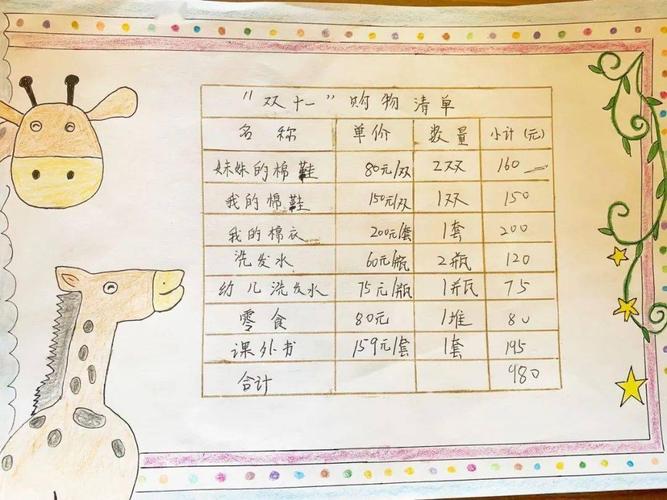 “双十一”购物清单
名称 单价 数量 小计(元)
妹妹的棉鞋 80元/双 2双 160
我的棉鞋 150元/双 1双 150
我的棉衣 200元/套 1套 200
洗发水 60元/瓶 2瓶 120
幼儿洗发水 75元/瓶 1瓶 75
零食 80元 1堆 80
课外书 159元/套 1套 195
合计 980